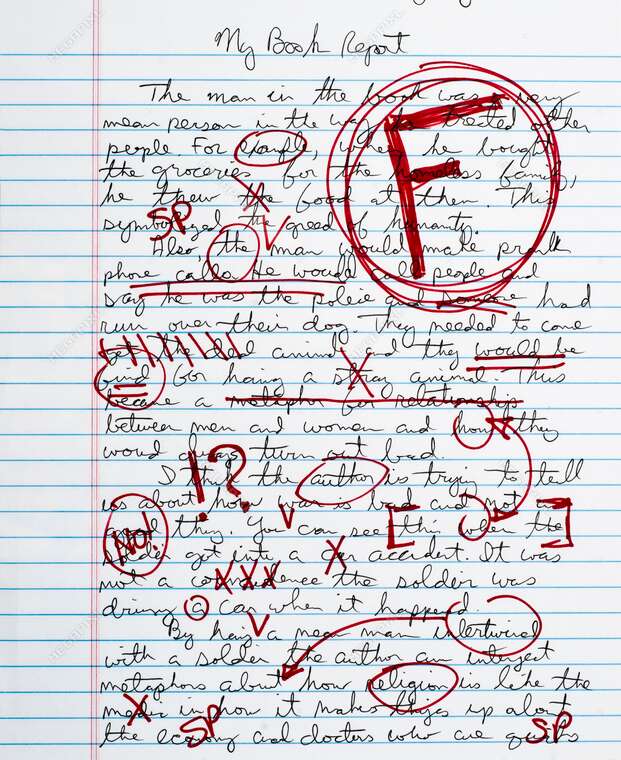 My Book Report
The man in the book was a very
mean person in the way he treated other
people. For example, when he bought
the groceries for the homeless family,
he thew the food at them. This
symbolized the greed of humanity.
Also the man would make prank
phone calls. He would call people and
say he was the police and someone had
run over their dog. They needed to come
get the dead animal and they would be
for having a stray animal. This
became a metaphor for relationships
between men and women and how they
woud always turn out bad.
I think the author is trying to tell
us about how war is bad and not a
good thing. You can see this when the
soldier got into a car accident. It was
not a the soldier was
driving a car when it happend.
By having a mean man intertwined
with a solder the author can interject
metaphors about how religion is like the
in how it makes things up about
the economy and doctors who are
F
SP
V
!?
V
NO!
V
SP
SP